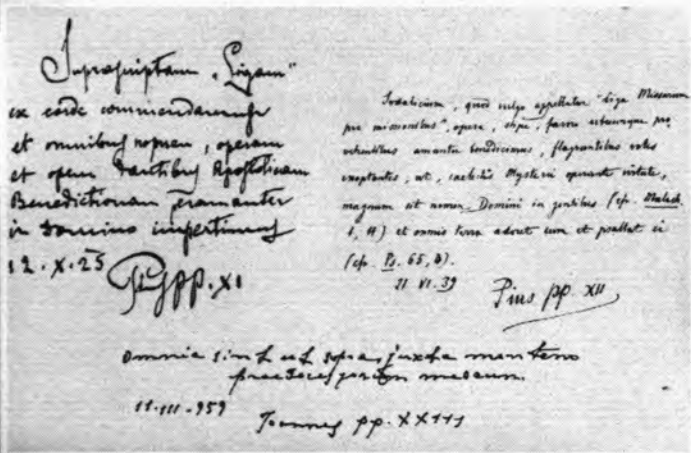 Suprascriptam „Ligam"
ex corde commendamus
et omnibus nomen, operam
et opem dantibus Apostolicam
Benedictionem peramanter
in Domino impertimus
12.X.25
Pius pp. XI
Sodalicium, quod vulgo appellatur "Liga Missarum
pro missionibus", opere, stipe, favore pro
vehentibus amanter benedicimus, flagrantibus votis
exoptantes, ut, caelestis Mysterii operante virtute,
magnum sit nomen Domini in gentibus (cfr. Malach.
1, 11) et omnis terra adoret eum et psallat ei
(cfr. Ps. 65, 4).
VI. 39
Pius pp. XII
Omnia sint ut supra, juxta mentem
praedecessorum meorum.
11-III-959
Joannes pp. XXIII